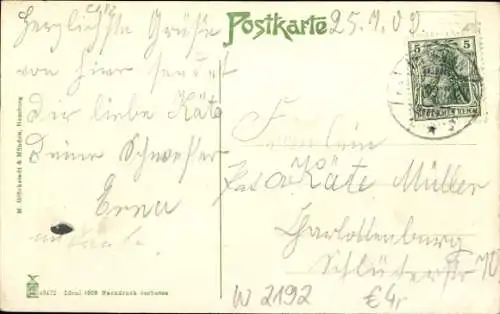 Postkarte
25.7.09.
5 5
DEUTSCHES REICH
Herzlichste Grüße
von hier sendet
Dir liebe Käte
Deine Schwester
Erna
Fräulein
Käte Müller
Charlottenburg
Schlüterstr. 70
M. Glückstadt & Münden, Hamburg
Ideal 1909 Nachdruck verboten
W 2192
€4,-